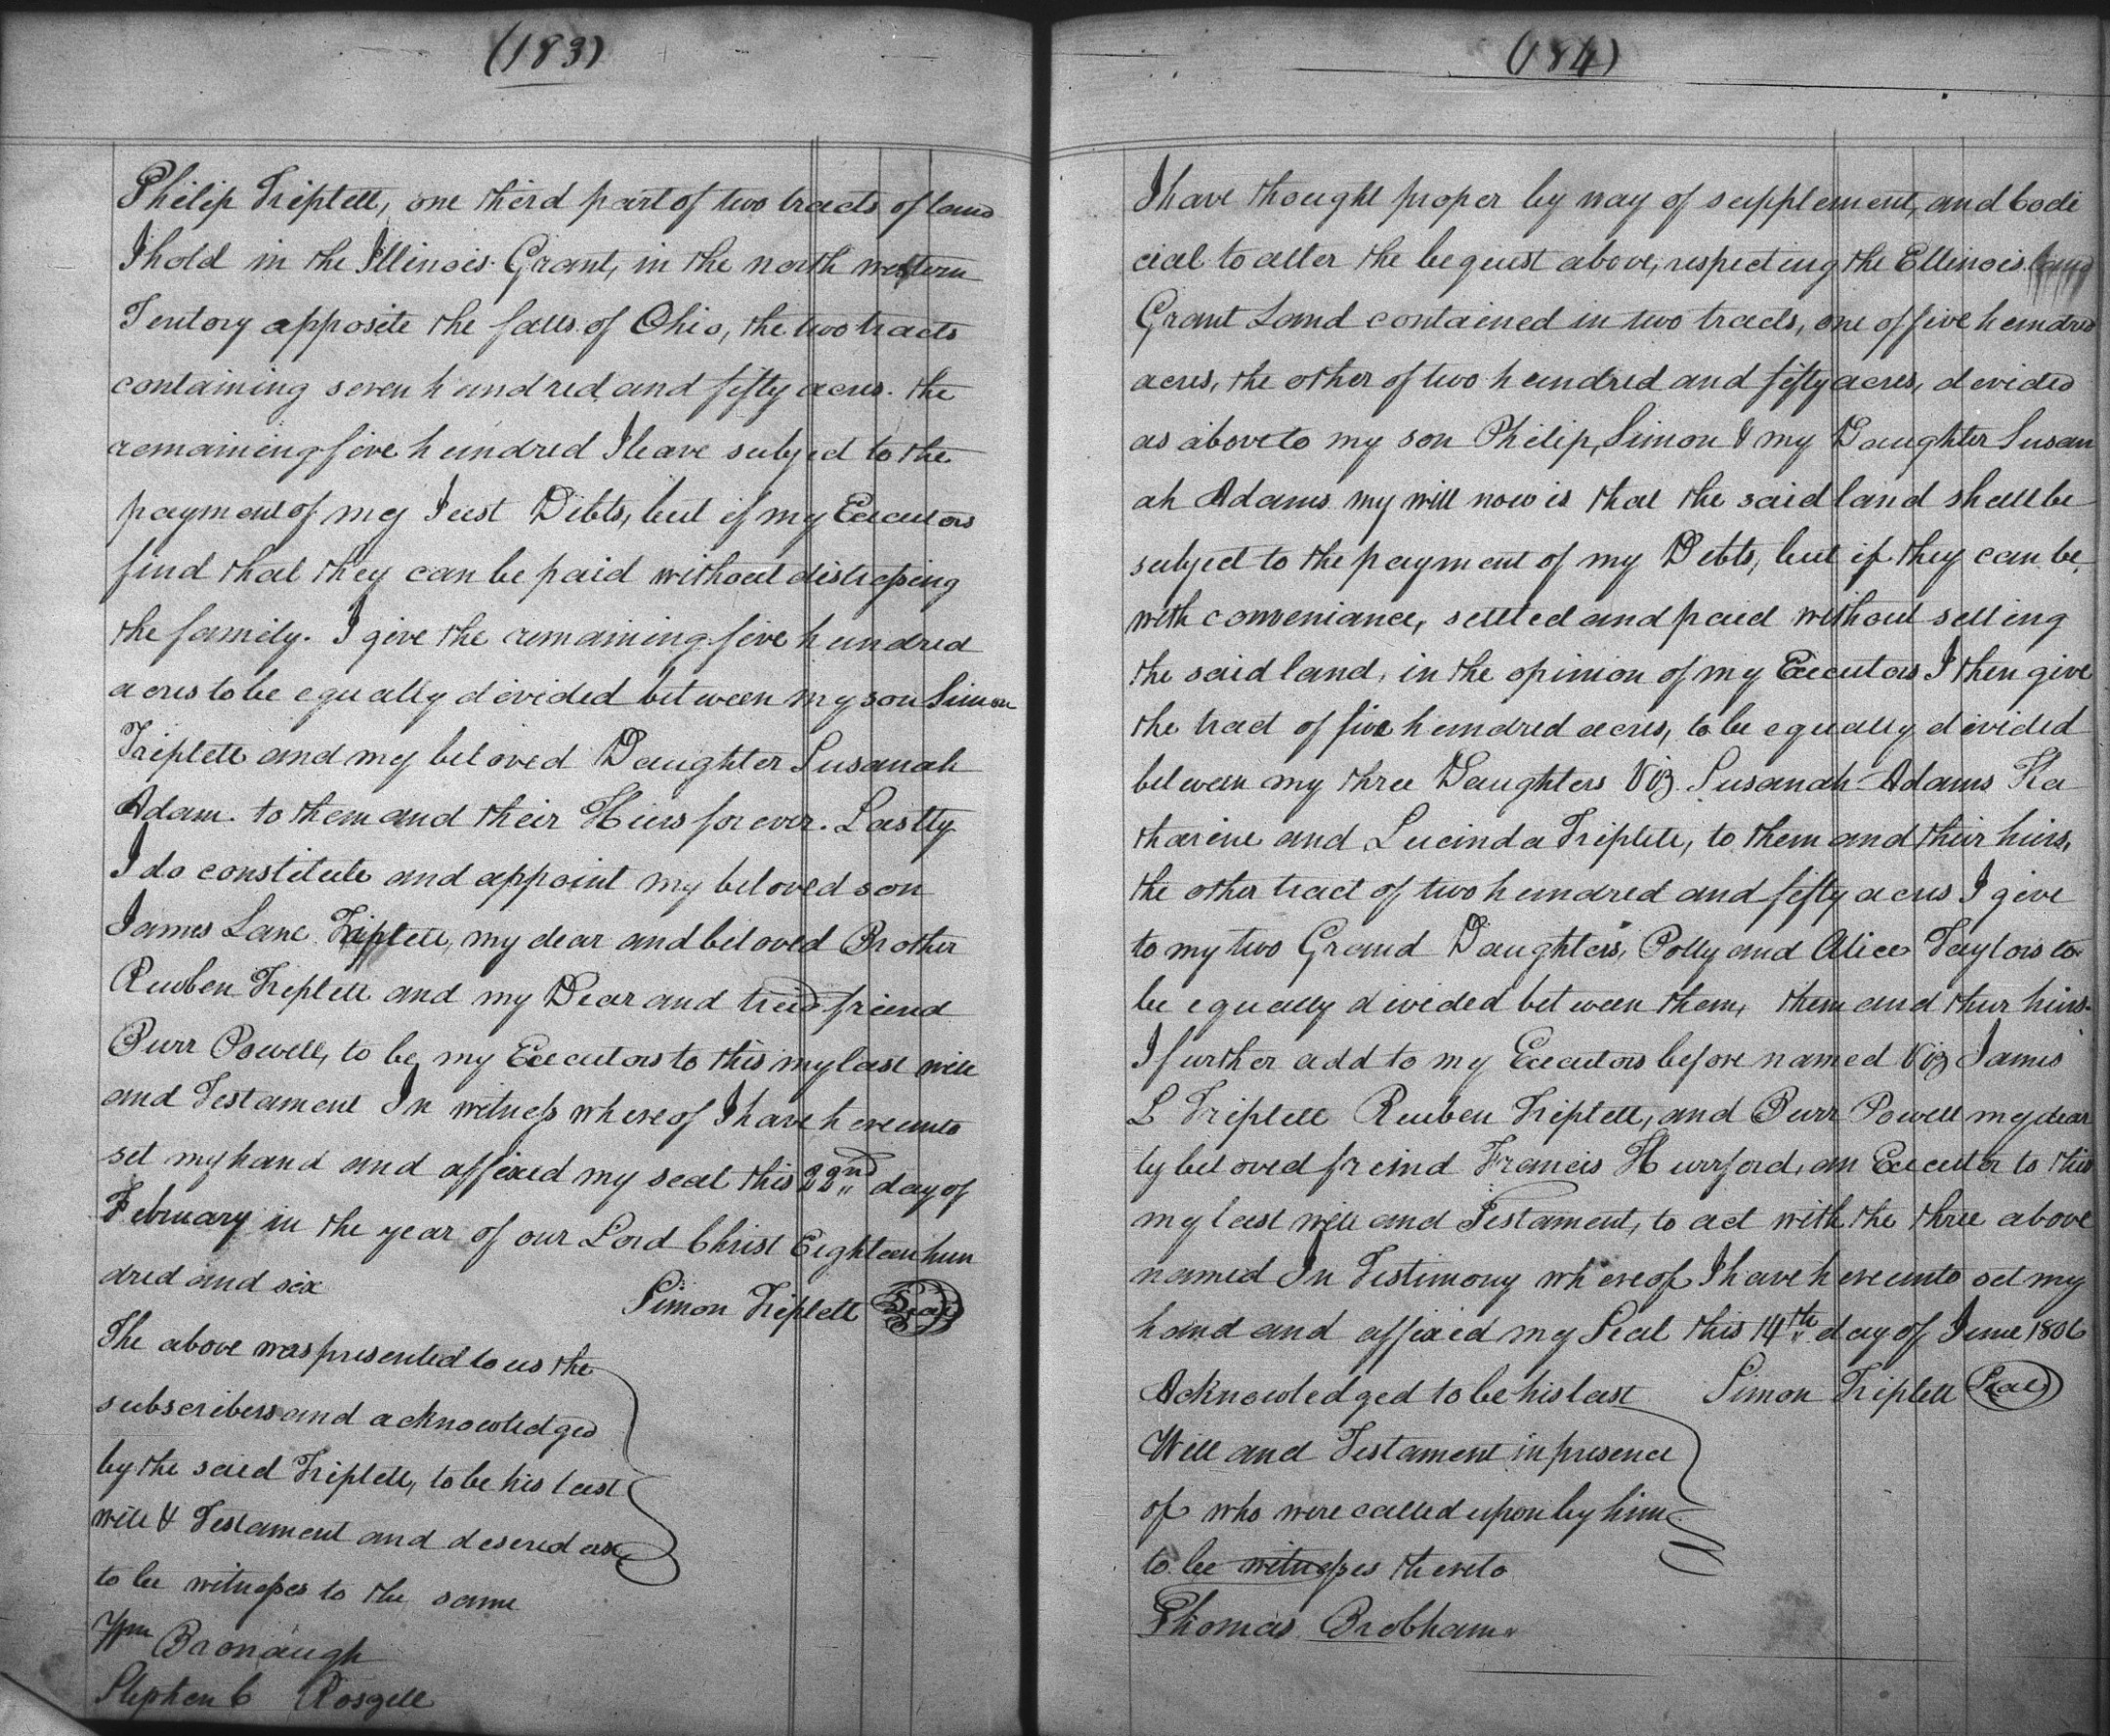 (183)
Philip Triplett, one third part of two tracts of land
I hold in the Illinois Grant, in the north western
Teritory opposite the falls of Ohio, the two tracts
containing seven hundred and fifty acres. the
remaining five hundred I leave subject to the
payment of my Just Debts, but if my Executors
find that they can be paid without distressing
the family. I give the remaining five hundred
acres to be equally divided between my son Simon
Triplett and my beloved Daughter Susanah
Adam. to them and their Hiers forever. Lastly
I do constitute and appoint my beloved son
James Lane Triplett, my dear and beloved Brother
Reuben Triplett and my Dear and tried friend
Burr Powell, to be my Executors to this my last will
and Testament In witness whereof I have hereunto
set my hand and affixed my seal this 22nd day of
February in the year of our Lord Christ Eighteen hun
dred and six
Simon Triplett Seal
The above was presented to us the
subscribers and acknowledged
by the said Triplett, to be his last
will & Testament and desired us
to be witnesses to the same
Wm Bronaugh
Stephen C Roszell
(184)
I have thought proper by way of supplement, and Codi
cial to alter the bequest above, respecting the Ellinois land
Grant Land contained in two tracts, one of five hundred
acres, the other of two hundred and fifty acres, divided
as above to my son Philip, Simon & my Daughter Susan
ah Adams my will now is that the said land shall be
subject to the payment of my Debts, but if they can be
with conveniance, settled and paid without selling
the said land, in the opinion of my Executors I then give
the tract of five hundred acres, to be equally divided
between my three Daughters Viz. Susanah Adams Ka
tharine and Lucinda Triplett, to them and their hiers,
the other tract of two hundred and fifty acres I give
to my two Grand Daughters, Polly and Alice Taylors to
be equally divided between them, them and their hiers.
I further add to my Executors before named Viz James
L Triplett Reuben Triplett, and Burr Powell my dear
ly beloved freind Francis Hurrford, an Executor to this
my last will and Testament, to act with the three above
named In Testimony whereof I have hereunto set my
hand and affixed my Seal this 14th day of June 1806
Simon Triplett Seal
Acknowledged to be his last
Will and Testament in presence
of who were called upon by him
to be witnesses thereto
Thomas Brobham